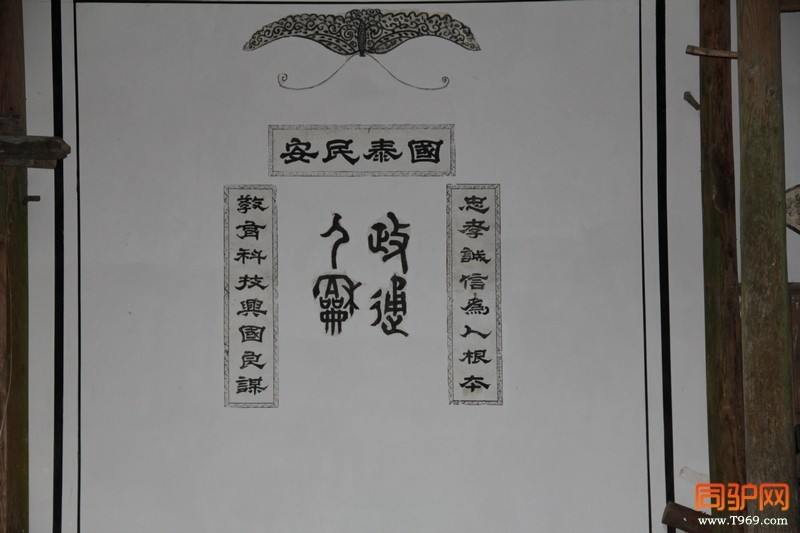 國泰民安
忠孝誠信為人根本
政通
人龢
教育科技興國良謀
同驴网
www.T969.com